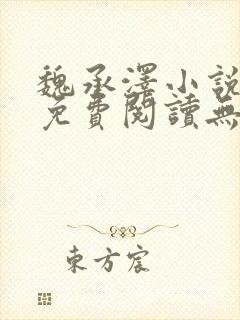 魏承澤小說
免費閱讀無
東方宸